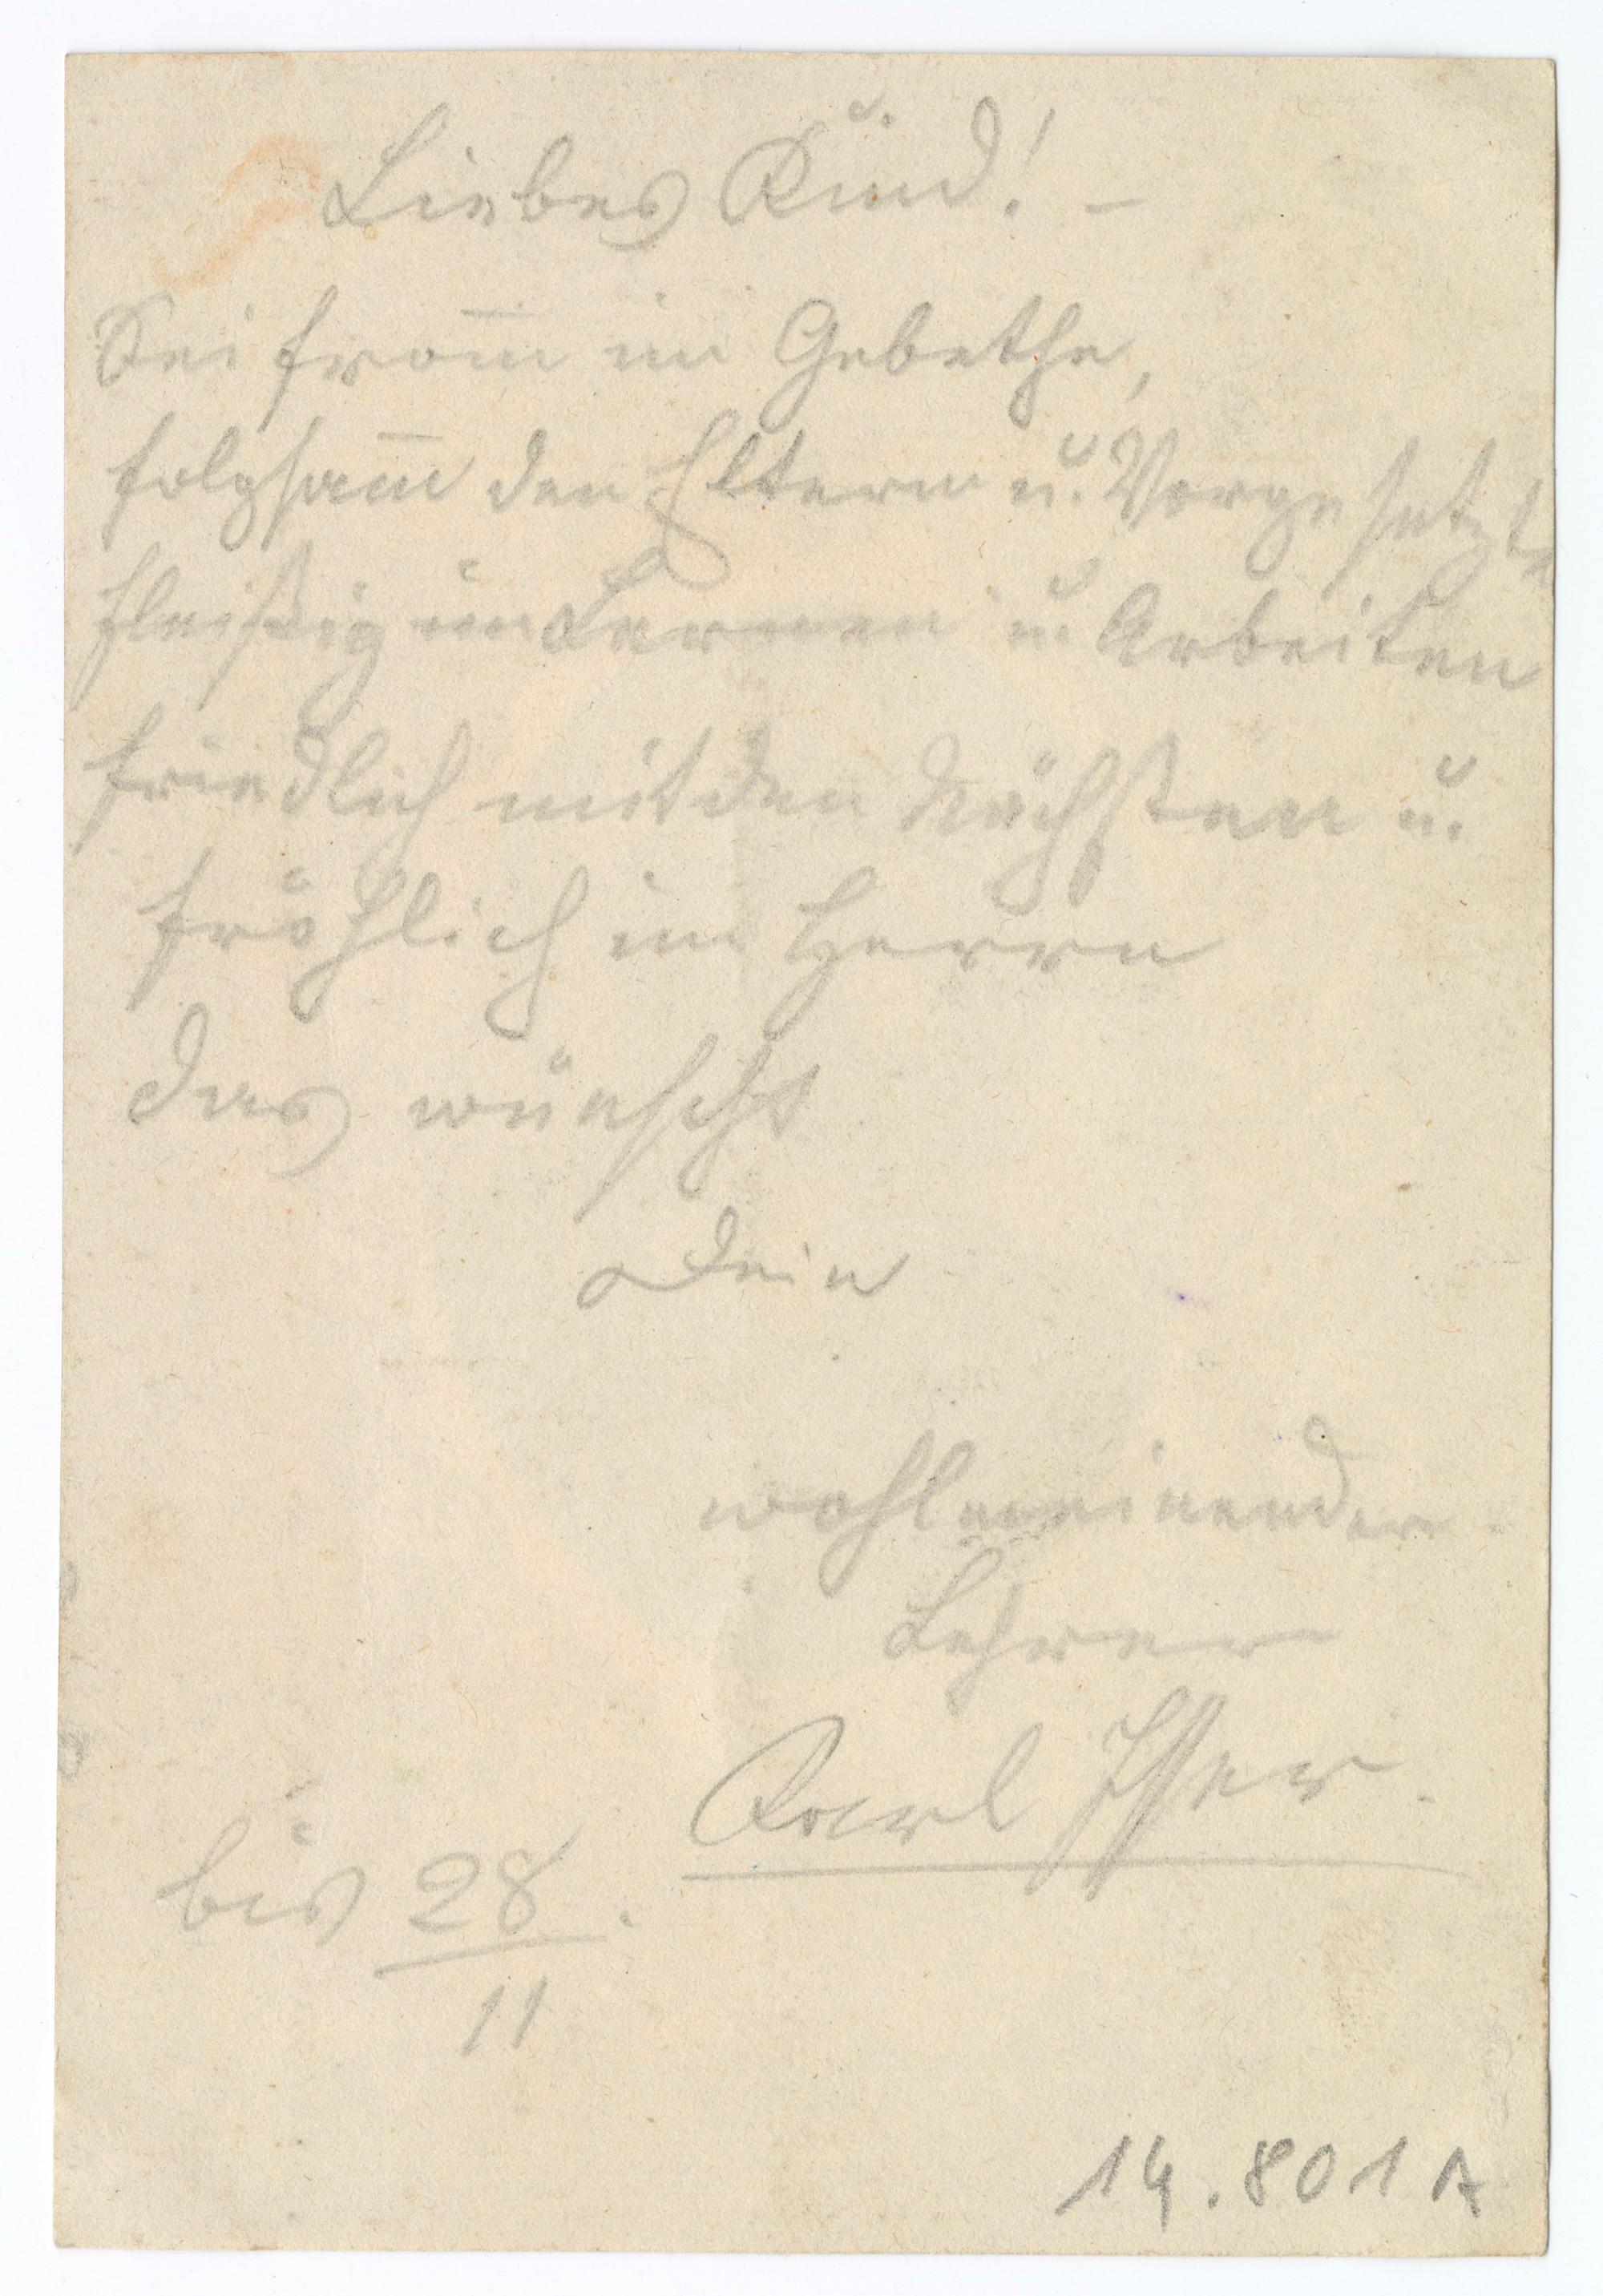 Liebes Kind! –
Sei from̄ im Gebethe,
folgsam̄ den Eltern u. Vorgesetzt
fleißig im Lernen u. Arbeiten
friedlich mit den Nächsten u.
fröhlich im Herrn
das wünscht
Dein
wohlmeinender
Lehrer
Karl
bis 28.
11
14.801 A